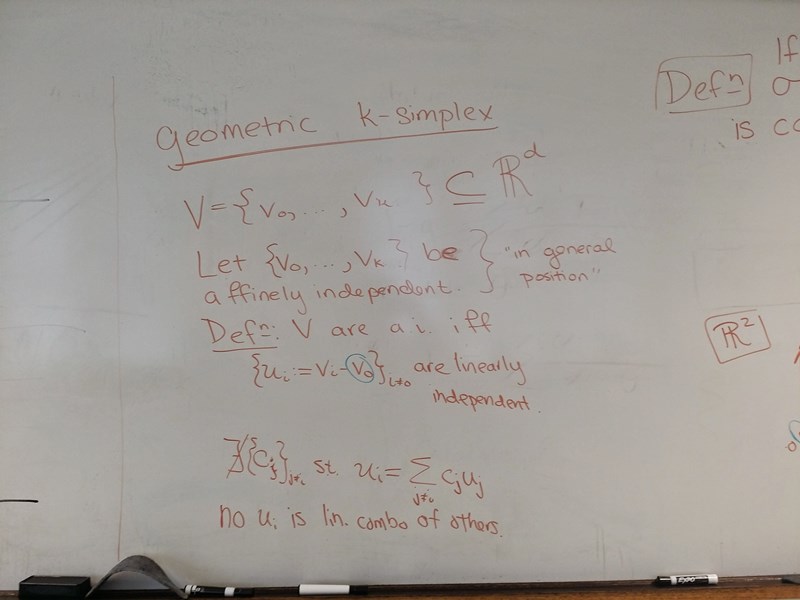 geometric k-simplex
V = {v₀, ..., vₖ} ⊆ ℝᵈ
Let {v₀, ..., vₖ} be
affinely independent. } "in general position"
Defⁿ: V are a.i. iff
{uᵢ := vᵢ - v₀}ᵢ≠₀ are linearly
independent.
∄{cⱼ}ⱼ≠ᵢ st. uᵢ = ∑ⱼ≠ᵢ cⱼuⱼ
no uᵢ is lin. combo of others.
If
Defⁿ σ
is co
ℝ²
EXPO